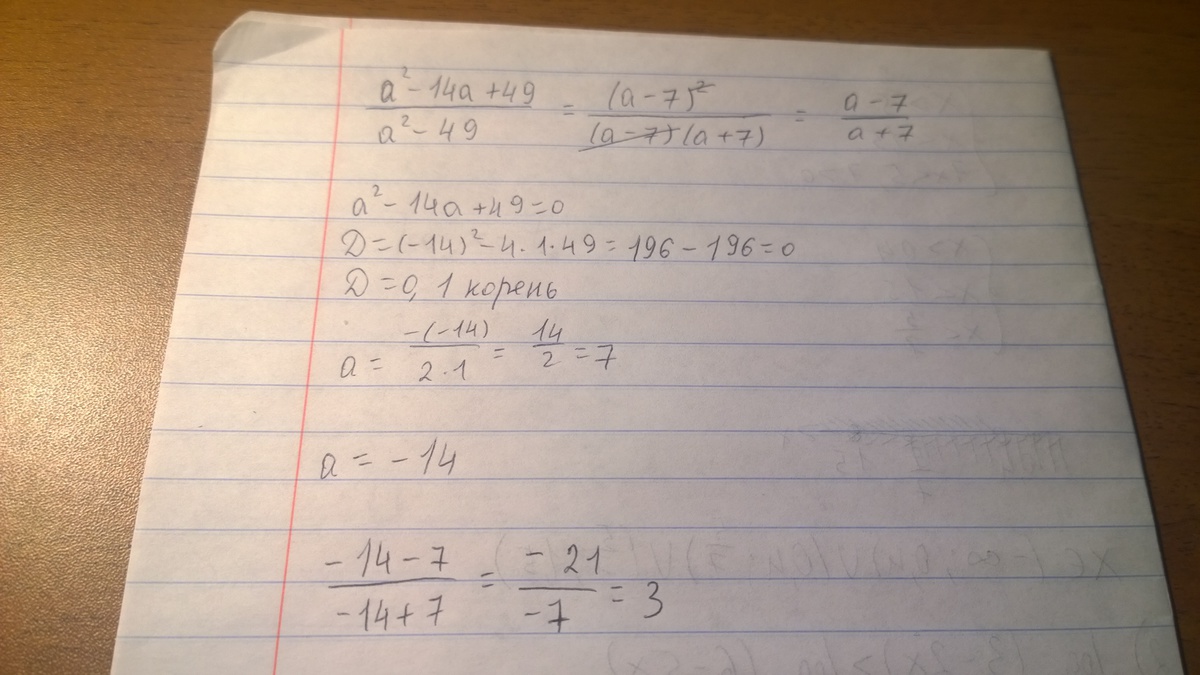 a² - 14a + 49 / a² - 49 = (a - 7)² / (a - 7)(a + 7) = a - 7 / a + 7
a² - 14a + 49 = 0
D = (-14)² - 4 · 1 · 49 = 196 - 196 = 0
D = 0, 1 корень
a = -(-14) / 2 · 1 = 14 / 2 = 7
a = -14
-14 - 7 / -14 + 7 = -21 / -7 = 3